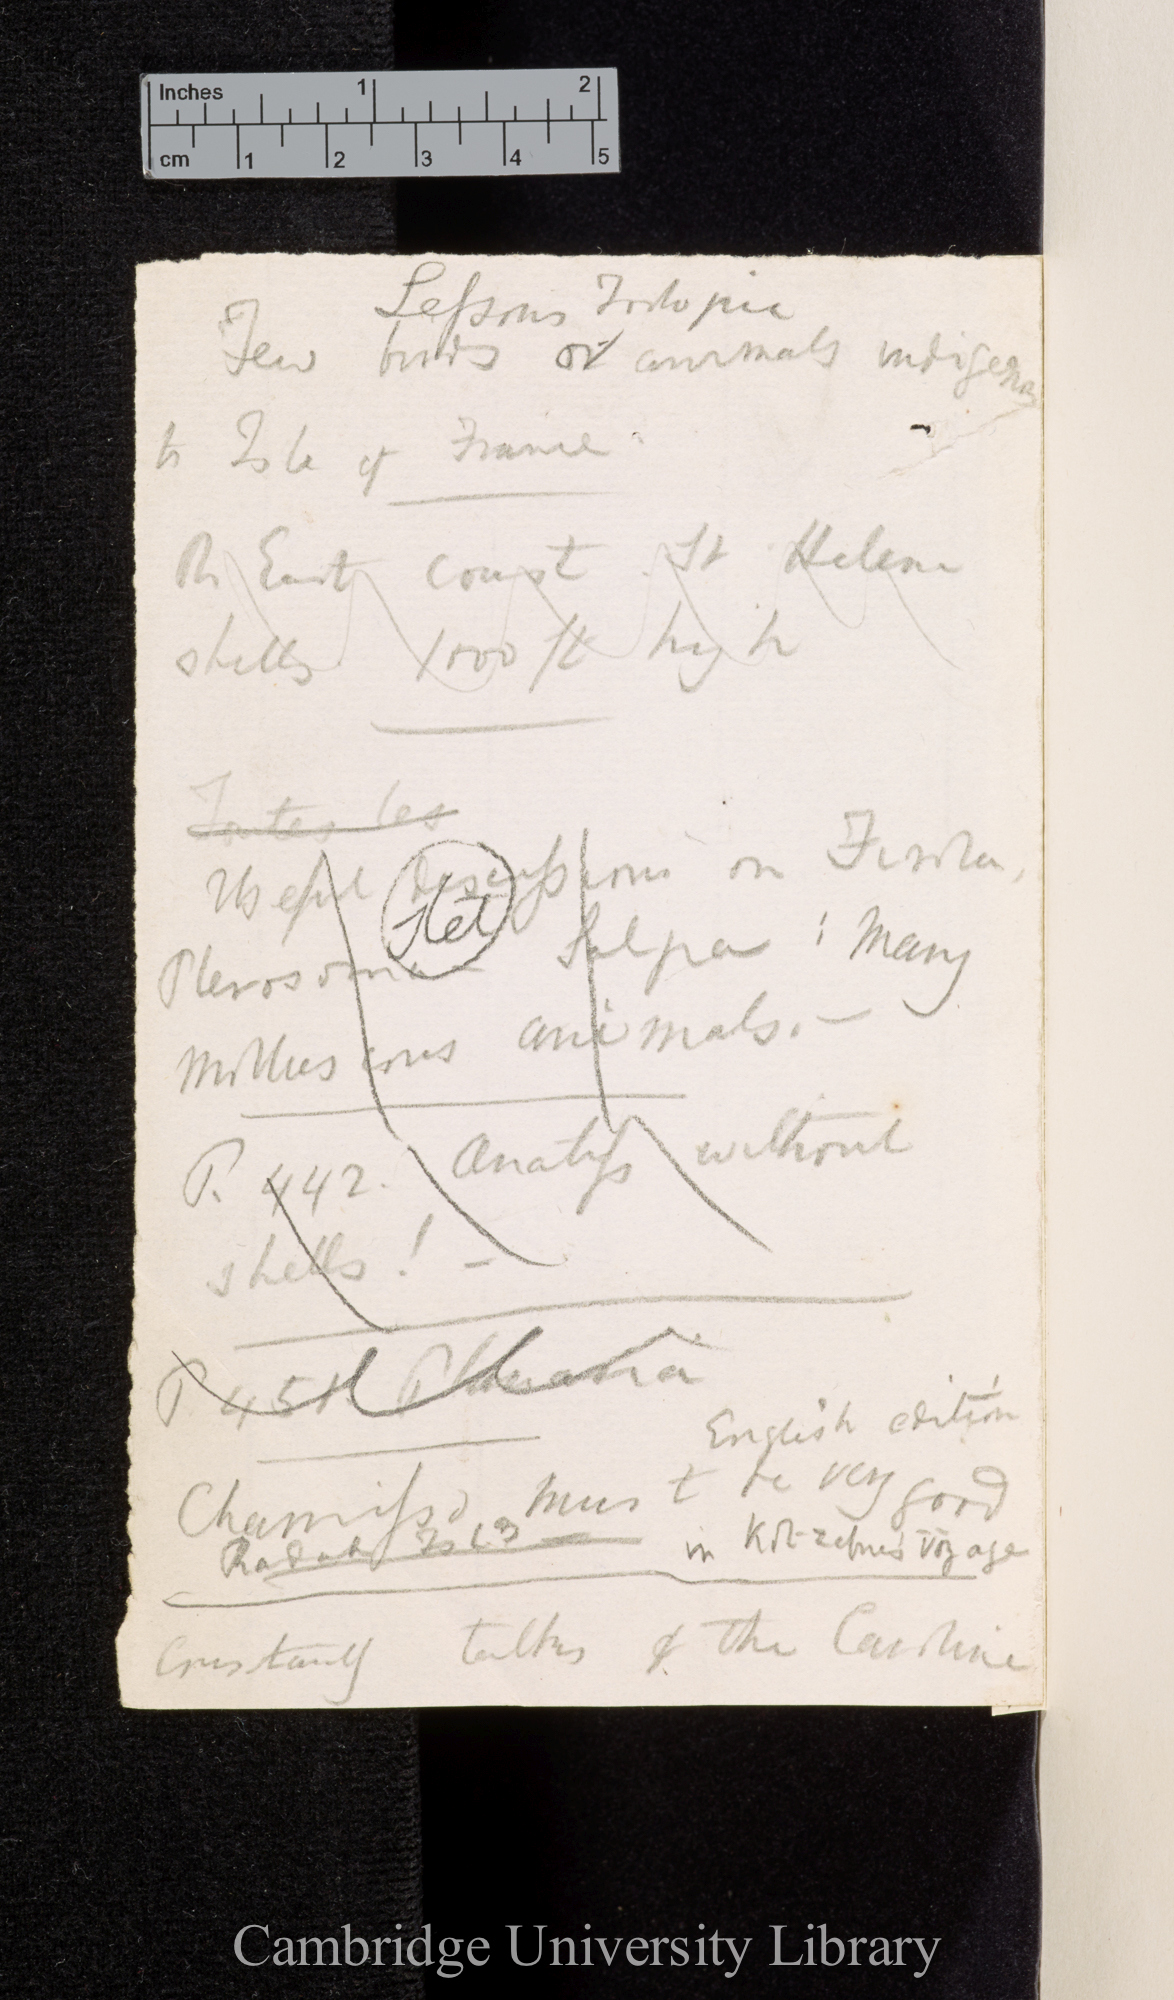 Inches 1 2
cm 1 2 3 4 5
Lessons Zoologie
Few birds or animals indigenous
to Isle of France
On East coast St Helena
shells 1000 ft high
Toutes les
Useful discussions on Firola,
Het
Pterosoma Salpa ; Many
Molluscous animals. —
P. 442. Anatifs without
shells! —
P 45
English edition
Chamisso must be very good
Radack Isls in Kotzebue's Voyage
Constantly talks of the Caroline
Cambridge University Library